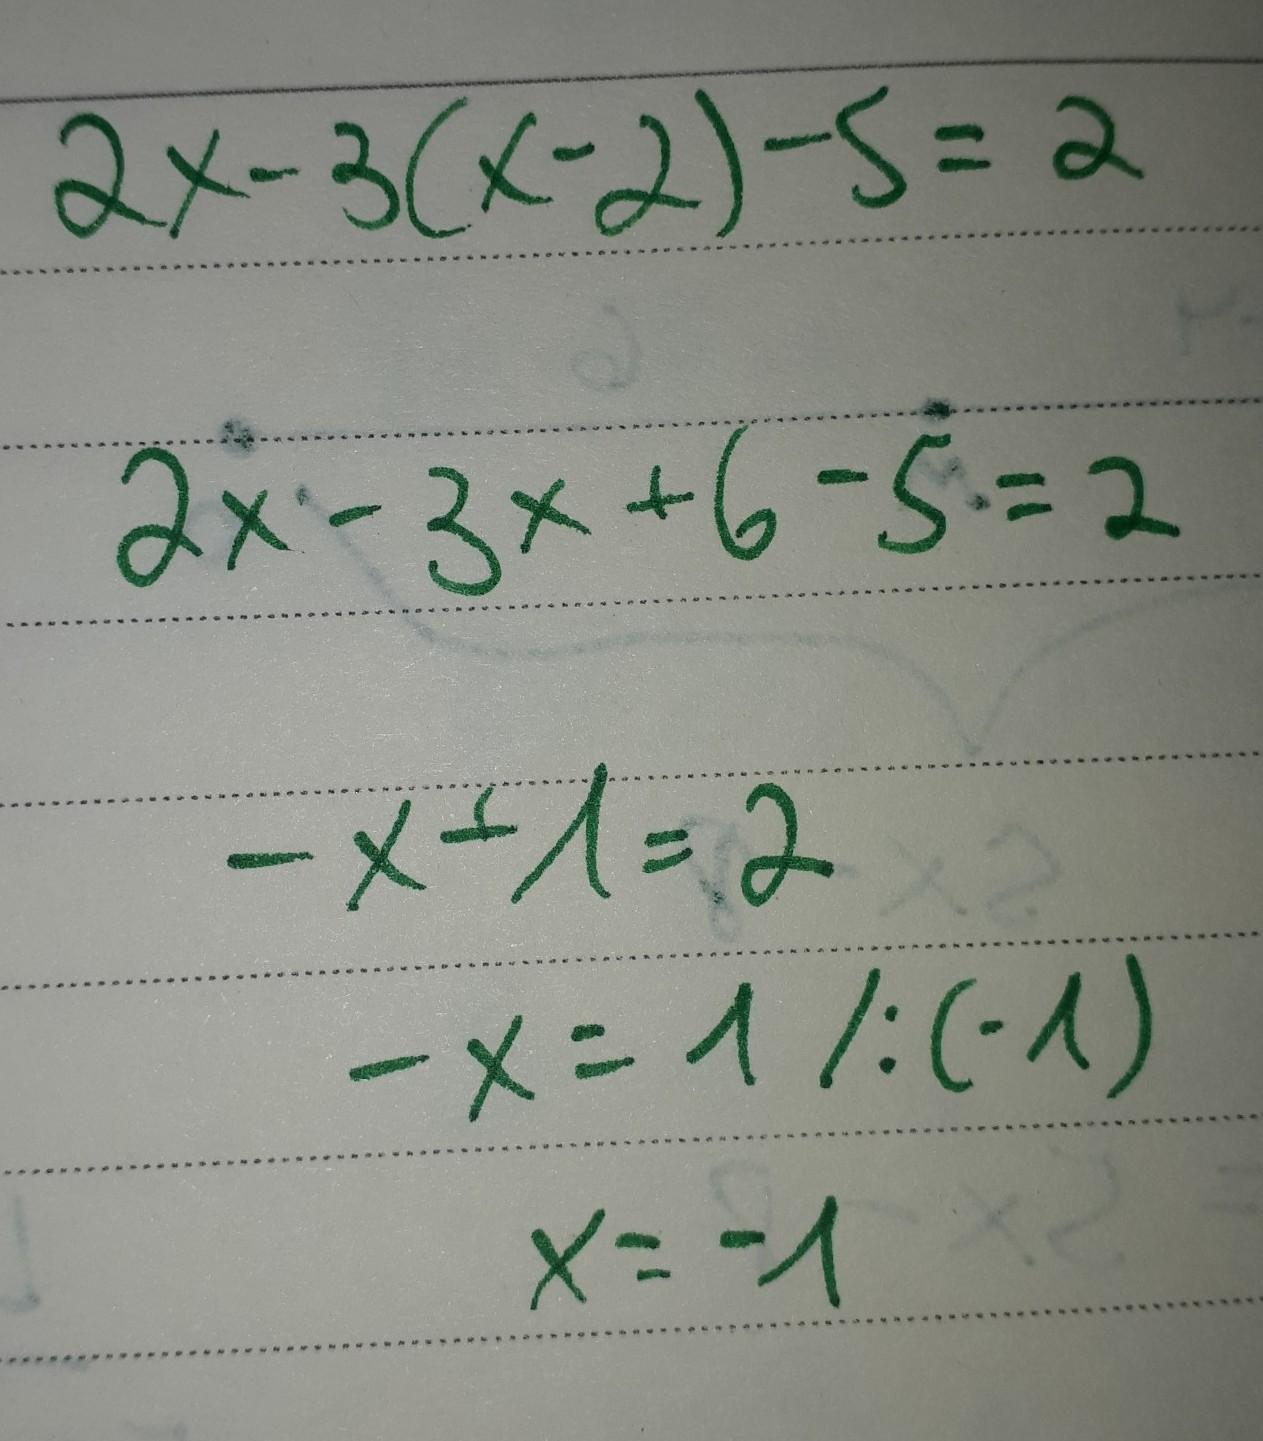 2x - 3(x - 2) - 5 = 2
2x - 3x + 6 - 5 = 2
- x + 1 = 2
- x = 1 /:(-1)
x = -1